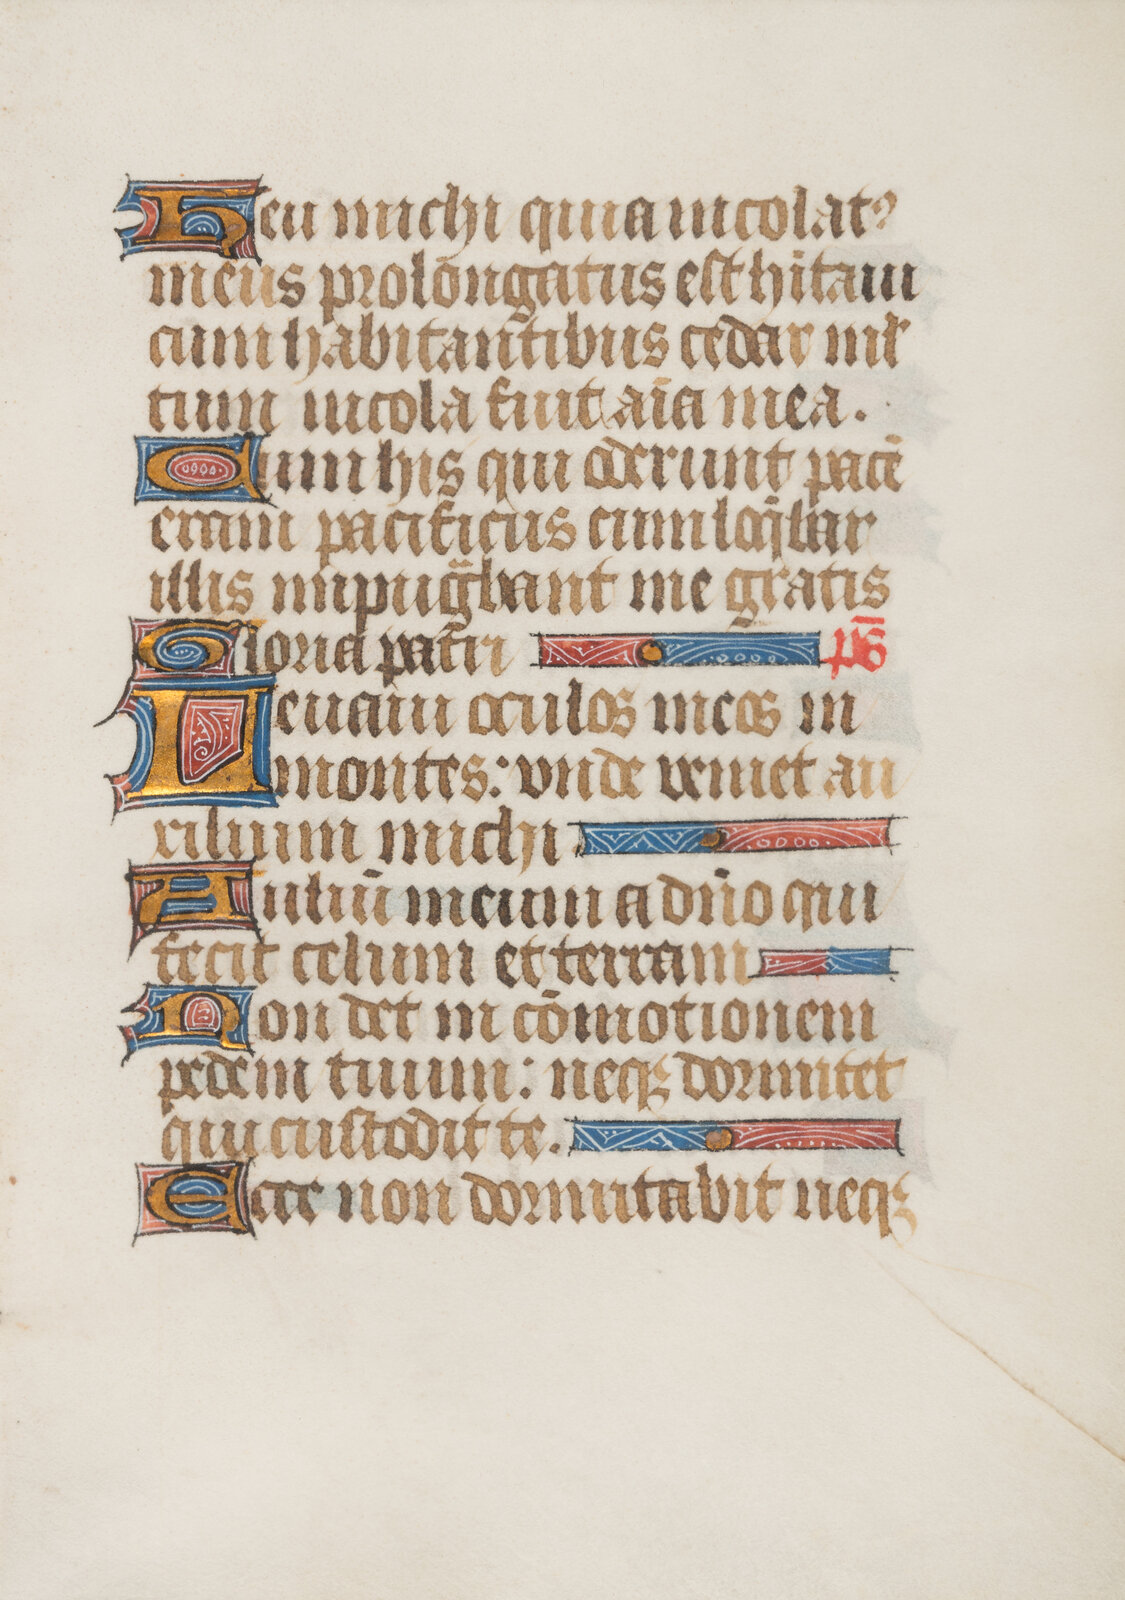 Heu michi quia incolatꝰ
meus prolongatus est hitaui
cum habitantibus cedar ml̄
tum incola fuit aīa mea.
Cum his qui oderunt pacē
eram pacificus cum loq̄bar
illis inpuḡbant me gratis
Gloria patri ps̄
Leuaui oculos meos in
montes: vnde veniet au
xilium michi
Auliū meum a dn̄o qui
fecit celum et terram
Non det in cōmotionem
pedem tuum: neqꝫ dormitet
qui custodit te.
Ecce non dormitabit neqꝫ